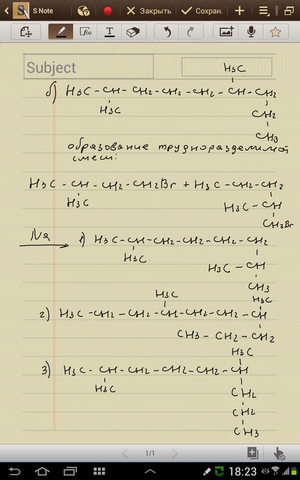 S Note
Закрыть
Сохран.
Subject
H₃C
б) H₃C - CH - CH₂ - CH₂ - CH₂ - CH - CH₂
H₃C
CH₂
CH₃
образование трудноразделимой
смеси:
H₃C - CH - CH₂ - CH₂Br + H₃C - CH₂ - CH₂
H₃C
H₃C - CH
CH₂Br
Na
1) H₃C - CH - CH₂ - CH₂ - CH₂ - CH₂
H₃C
H₃C - CH
CH₃
H₃C
H₃C
2) H₃C - CH₂ - CH₂ - CH - CH₂ - CH₂ - CH₂ - CH
CH₃ - CH₂ - CH₂
H₃C
3) H₃C - CH - CH₂ - CH₂ - CH₂ - CH
H₃C
CH₂
CH₂
CH₃
1/1
18:23